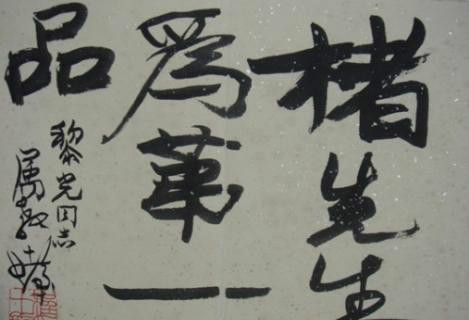 楮先生
爲第一
品
黎光同志
属